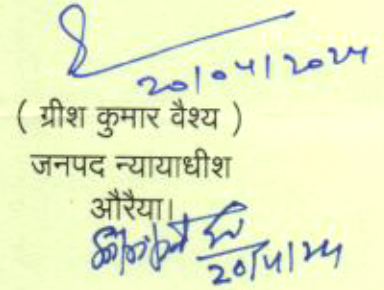 20/04/2024
( ग्रीश कुमार वैश्य )
जनपद न्यायाधीश
औरैया।
20/4/24